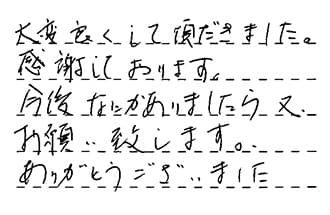 大変良くして頂だきました。
感謝しております。
今後なにかありましたら又、
お願い致します。
ありがとうございました